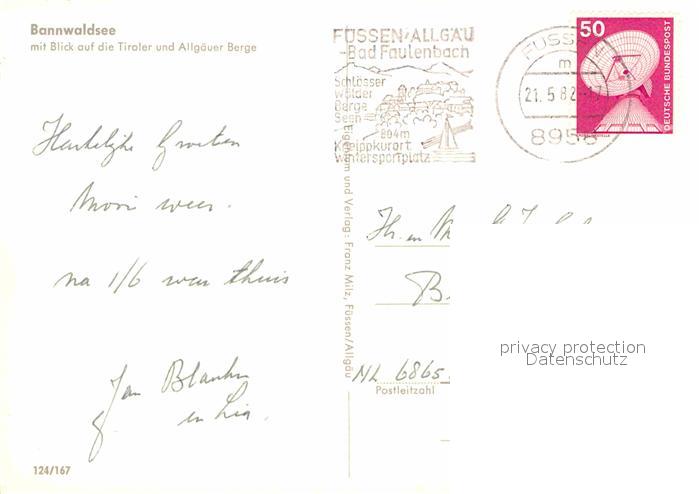 Bannwaldsee
mit Blick auf die Tiroler und Allgäuer Berge
FÜSSEN/ALLGÄU
-Bad Faulenbach
Schlösser
Wälder
Berge
Seen
804m
Kneippkurort
Wintersportplatz
FÜSSEN
m
21.5.82-17
8958
50
DEUTSCHE BUNDESPOST
Hartelijke Groeten
Mooi weer.
na 1/6 weer thuis
Jan
en Lia.
Eigentum und Verlag: Franz Milz, Füssen/Allgäu
Hr. en
B.
NL 6865
Postleitzahl
privacy protection
Datenschutz
124/167